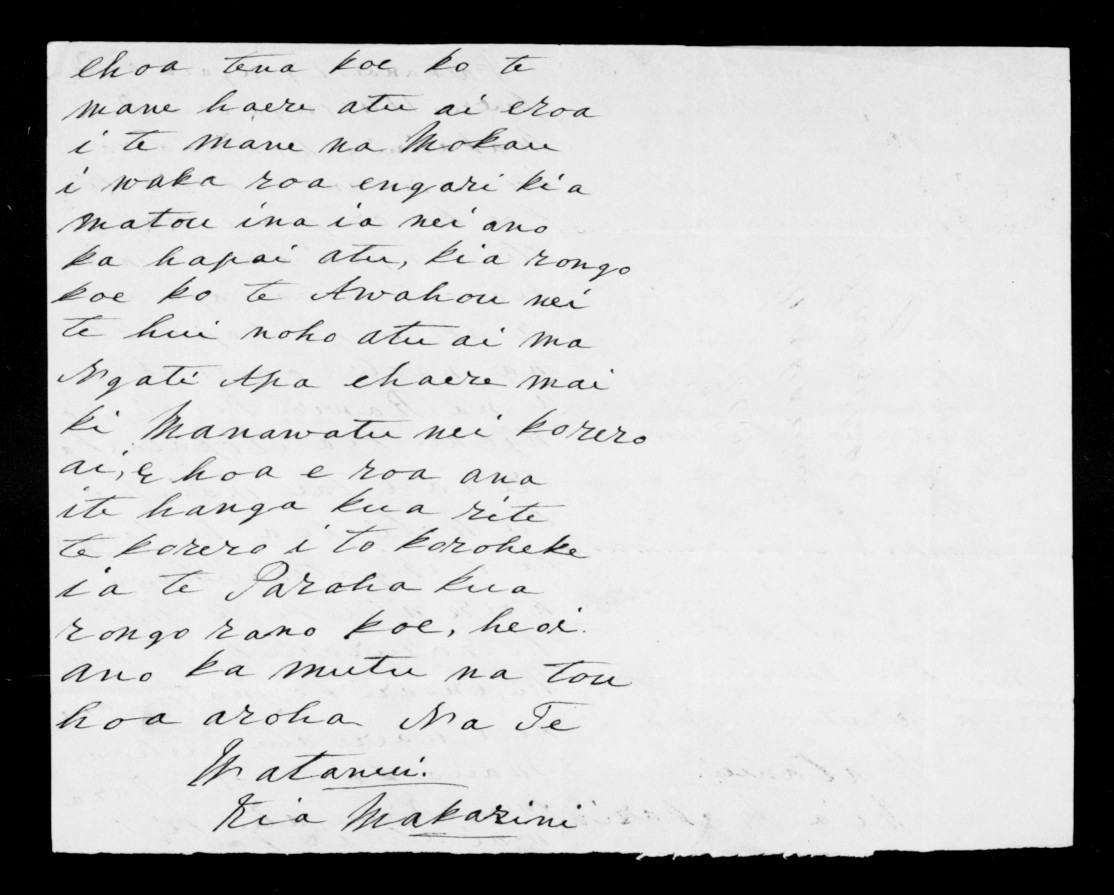 ehoa tena koe ko te
mane haere atu ai eroa
i te mane na Mokau
i waka roa engari kia
matou ina ia nei ano
ka hapai atu, kia rongo
koe ko te Awahou nei
te hui noho atu ai ma
Ngati Apa ehaere mai
ki Manawatu nei korero
ai, E hoa e roa ana
ite hanga kua rite
te korero i to koroheke
ia te Paroha kua
rongo rano koe, heoi.
ano ka mutu na tou
hoa aroha Na Te
Watanui.
Kia Makarini